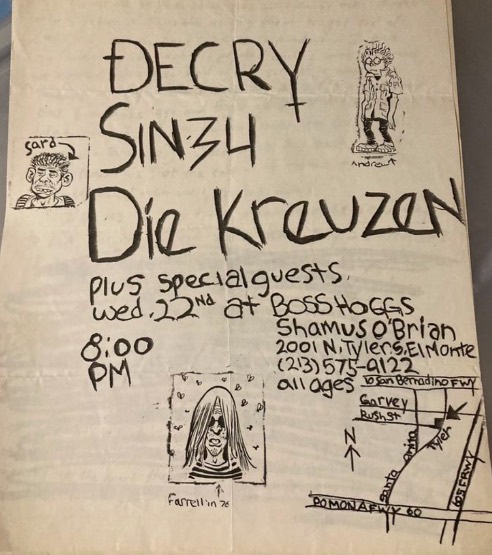 DECRY
SIN 34
Die Kreuzen
Sara
Andrew
plus special guests.
wed. 22nd at BOSS HOGGS
Shamus O'Brian
8:00
PM
2001 N. Tyler S. El Monte
(213) 575-9122
all ages
10 San Berradino FWY
Garvey
Rush st
N
Santa Anita
Tyler
605 FRWY
POMONA FWY 60
Farrell in 76